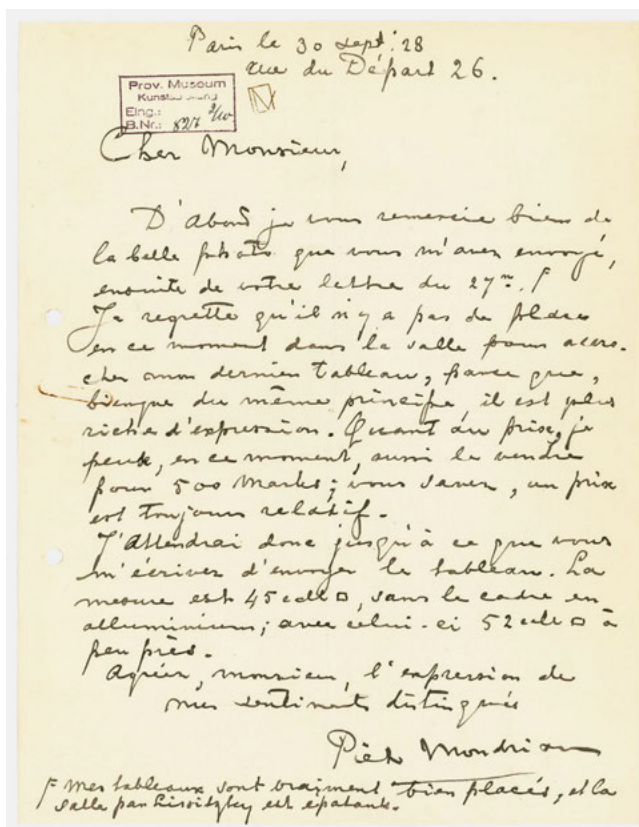 Paris le 30 sept: 28
rue du Départ 26.
Prov. Museum
Eing.:
B.Nr.: 827 2/10
Cher Monsieur,
D'abord je vous remercie bien de
la belle photo que vous m'avez envoyé,
ensuite de votre lettre du 27me. F
Je regrette qu'il n'y a pas de place
en ce moment dans la salle pour accro-
cher mon dernier tableau, parce que,
bienque du même principe, il est plus
riche d'expression. Quant au prix, je
peux, en ce moment, aussi le vendre
pour 500 Marks; vous savez, un prix
est toujours relatif.
J'attendrai donc jusqu'à ce que vous
m'écrivez d'envoyer le tableau. La
mesure est 45 □, sans le cadre en
alluminium; avec celui-ci 52 □ à
peu près.
Agréer, monsieur, l'expression de
mes sentiments distingués
Piet Mondrian
F Mes tableaux sont vraiment bien placés, et la
salle par Lissitzky est epatante.